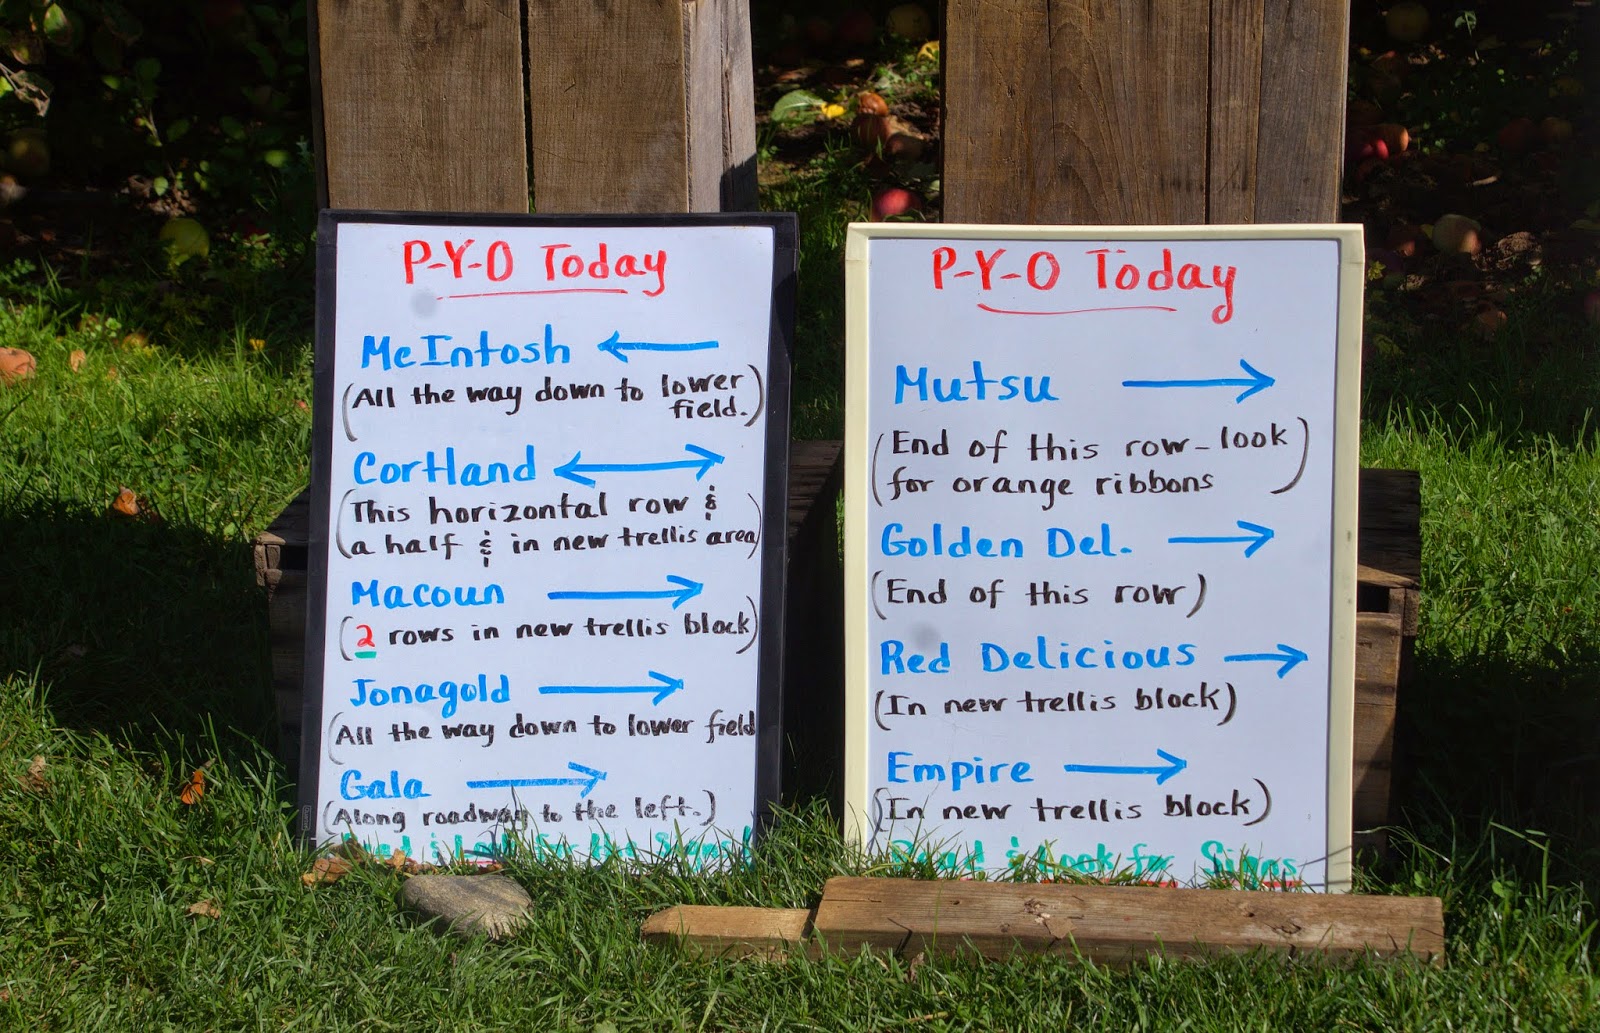 P-Y-O Today
McIntosh
(All the way down to lower
field.)
Cortland
(This horizontal row &
a half & in new trellis area)
Macoun
(2 rows in new trellis block)
Jonagold
(All the way down to lower field
Gala
(Along roadway to the left.)
Read & Look for the Signs!
P-Y-O Today
Mutsu
(End of this row - look
for orange ribbons)
Golden Del.
(End of this row)
Red Delicious
(In new trellis block)
Empire
(In new trellis block)
Read & Look for Signs